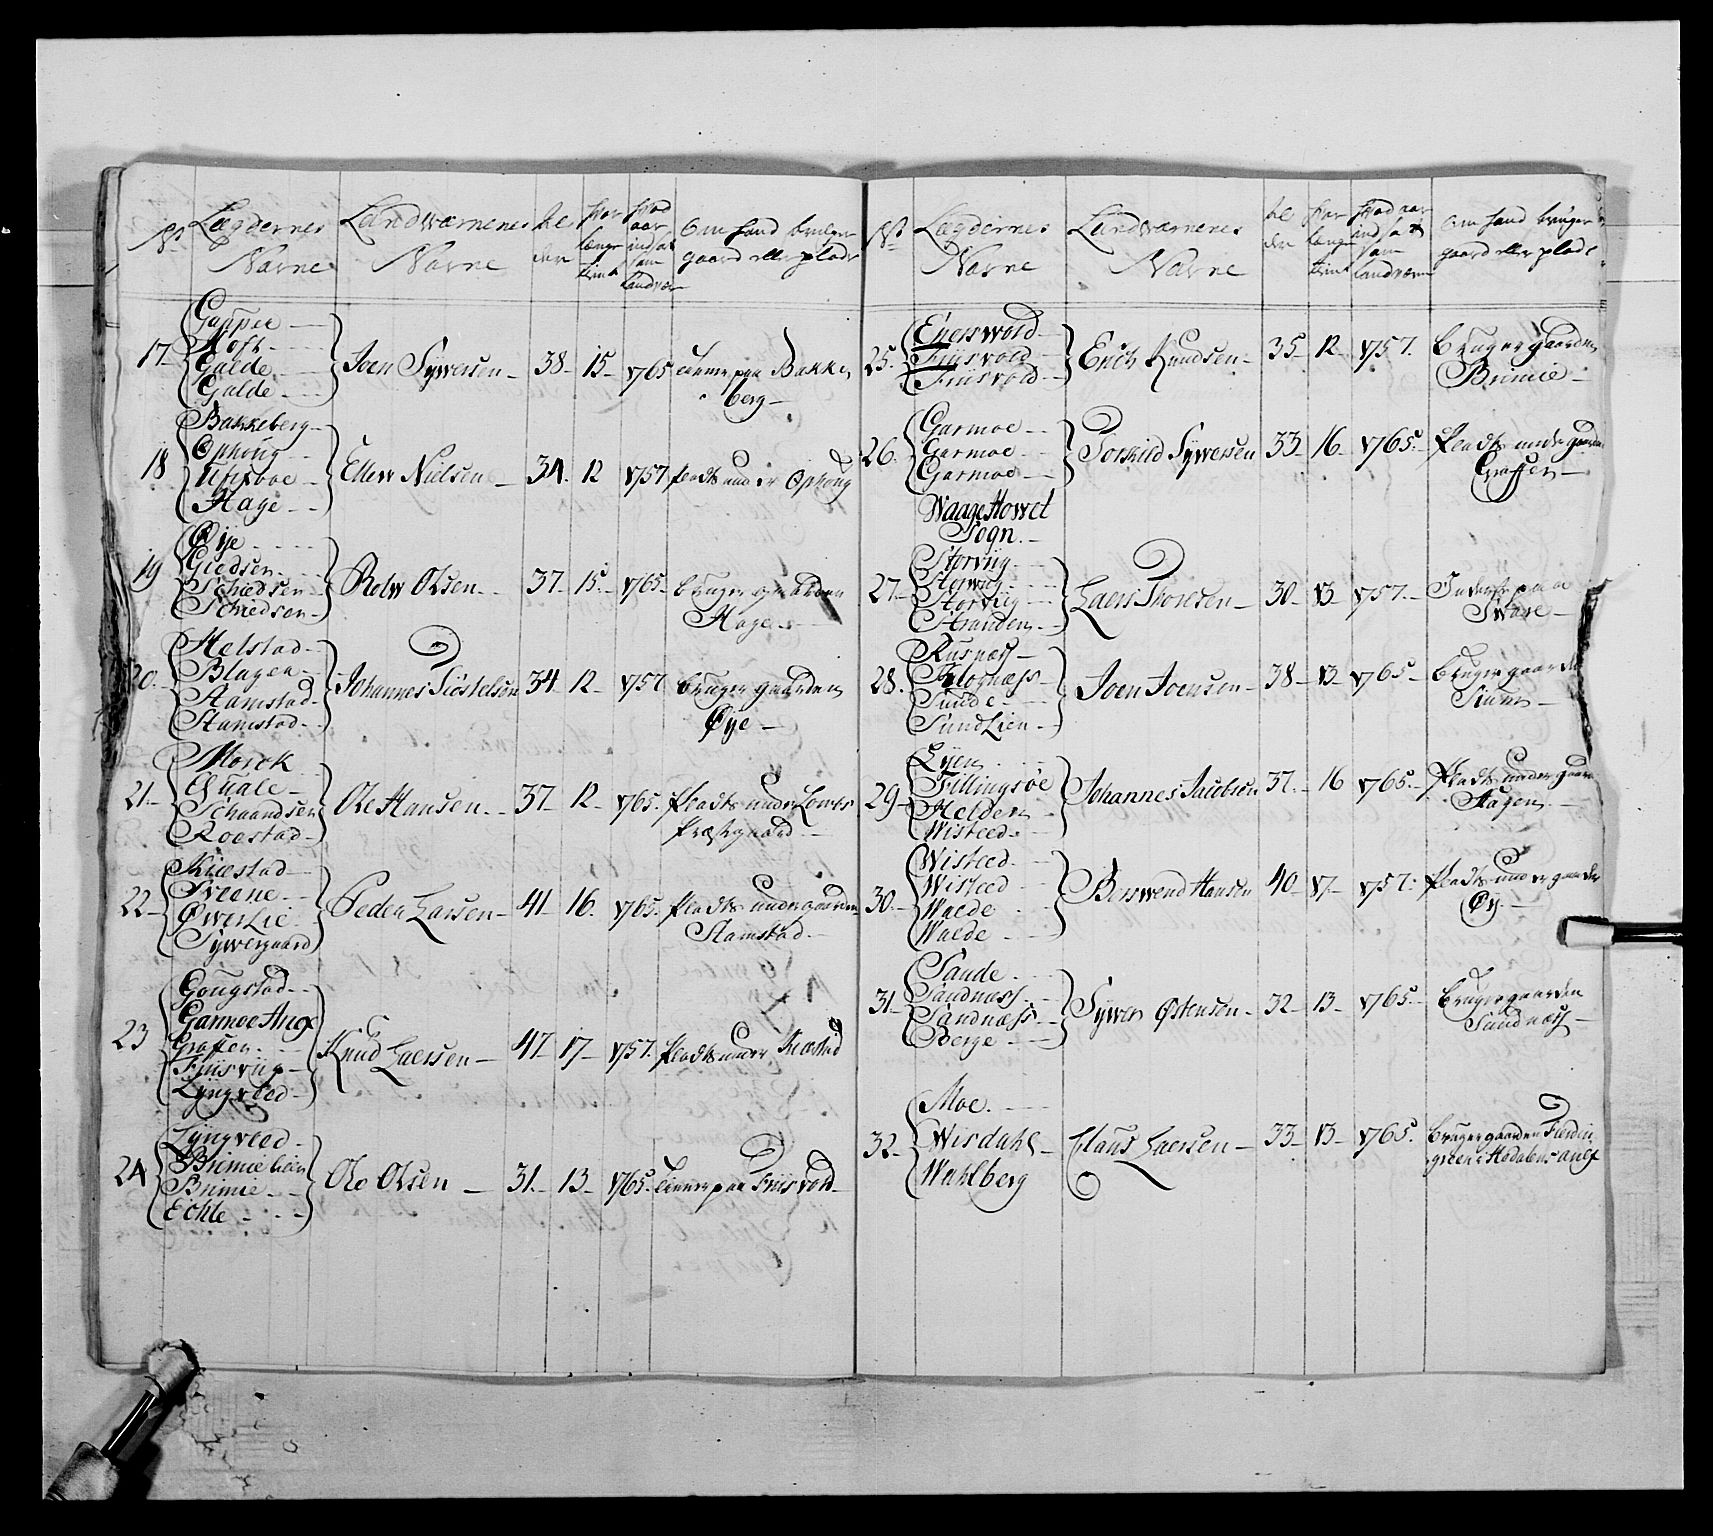 No Lægdernes Navne Landværnenes Navne Al der hvor længe tient hvad aar indsat som Landvær Om hand bruger gaard eller plads
17 Gapper Hoft Galde Galde Joen Sywersen 38 15 1765 paa Bakke berg
18 Bakkeberg Ophoug Hage Ellew Nielsen 34 12 1757 pladts under Ophoug
19 Øye Giedsen Schiedsen Schiedsen Rolw Olsen 37 15 1765 bruger gaarden Hage
20 Helstad Blagen Stamstad Stamstad Johannes Tiøstelsen 34 12 1757 bruger gaarden Øye
21 Morck Quale Schaandsen Roestad Ole Hansen 37 12 1765 Pladts under Lomes Præstgaard
22 Kiæstad Sveene Øwerlie Sywergaard Peder Larsen 41 16 1765 Pladts under gaarden Stamstad
23 Gougstad Garmoe Ang Graffer Friisviig Lyngveed Knud Laersen 47 17 1757 Pladts under Kiæstad
24 Lyngveed Brimie lien Brimie Echle Ole Olsen 31 13 1765 paa Friisvold
No Lægdernes Navne Landværnenes Navne Al der hvor længe tient hvad aar indsat som Landværn Om hand bruger gaard eller plads
25 Enerswold Friisvold Friisvold Erich Knudsen 35 12 1757 Bruger gaarden Brimie
26 Garmoe Garmoe Garmoe Torkild Sywersen 33 16 1765 Pladts under gaarden Graffer
Waage Howet
Sogn
27 Storviig Storviig Storviig Stranden Laers Thoresen 30 13 1757 Inderst paa Sware
28 Rusnæss Kloknæss Sunde Sundlien Joen Joensen 38 13 1765 Bruger gaarden
29 Lyen Tillingsøe Helden Wisteed Johannes Jacobsen 37 16 1765 Pladts under gaarden Hagen
30 Wisteed Wisteed Waede Waede Berswend Hansen 40 17 1757 Pladts under gaarden Øy
31 Sande Sandnæss Sandnæss Berge Sywer Østensen 32 13 1765 Bruger gaarden Sandnæss
32 Moe Wisdahl Wahlberg Claus Laersen 33 13 1765 bruger gaarden